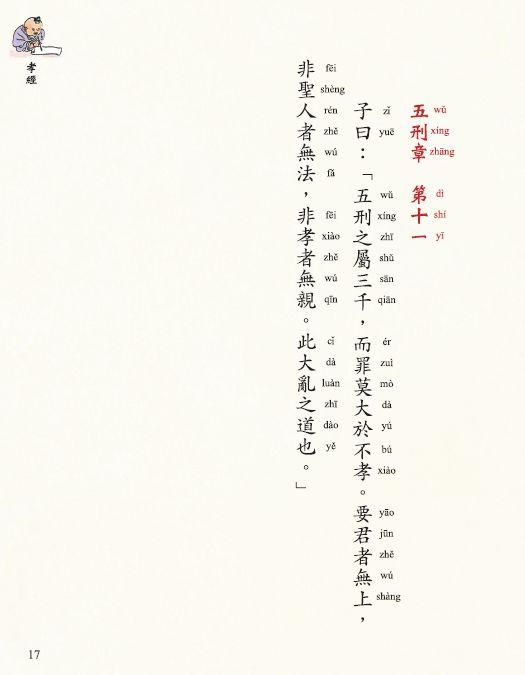 孝經
五刑章　第十一
wǔ xíng zhāng dì shí yī
子曰：「五刑之屬三千，而罪莫大於不孝。要君者無上，
zǐ yuē wǔ xíng zhī shǔ sān qiān ér zuì mò dà yú bú xiào yāo jūn zhě wú shàng
非聖人者無法，非孝者無親。此大亂之道也。」
fēi shèng rén zhě wú fǎ fēi xiào zhě wú qīn cǐ dà luàn zhī dào yě
17